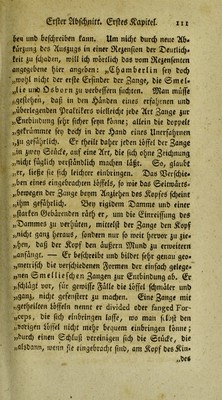 Erster Abschnitt. Erstes Kapitel. 111
hen und beschreiben kann. Um nicht durch neue Ab-
kürzung des Auszugs in einer Rezension der Deutlich-
keit zu schaden, will ich wörtlich das vom Rezensenten
angegebene hier angeben: „Chamberlin sey doch
„wohl nicht der erste Erfinder der Zange, die Smel-
„lie und Osborn zu verbessern suchten. Man müsse
„gestehen, daß in den Händen eines erfahrnen und
„überlegenden Praktikers vielleicht jede Art Zange zur
„Entbindung sehr sicher seyn könne; allein die doppelt
„gekrümmte sey doch in der Hand eines Unerfahrnen
„zu gefährlich. Er theilt daher jeden löffel der Zange
„in zwey Stücke, auf eine Art, die sich ohne Zeichnung
„nicht füglich verständlich machen läßt. So, glaubt
„er, ließe sie sich leichter einbringen. Das Verschie-
„ben eines eingebrachten löffels, so wie das Seitwärts-
„bewegen der Zange beym Anziehen des Kopfes scheint
„ihm gefährlich. Bey rigidem Damme und einer
„starken Gebärenden räth er, um die Einreissung des
„Dammes zu verhüten, mittelst der Zange den Kopf
„nicht ganz heraus, sondern nur so weit hervor zu zie-
„hen, daß der Kopf den äußern Mund zu erweitern
„anfänge. — Er beschreibt und bildet sehr genau geo-
„metrisch die verschiedenen Formen der einfach geleg-
„nen Smellieschen Zangen zur Entbindung ab. Er
„schlägt vor, für gewisse Fälle die löffel schmäler und
„ganz, nicht gefenstert zu machen. Eine Zange mit
„getheilten löffeln nennt er divided oder funged For-
„ceps, die sich einbringen lasse, wo man sonst den
„vorigen löffel nicht mehr bequem einbringen könne;
„durch einen Schluß vereinigen sich die Stücke, die
„alsdann, wenn sie eingebracht sind, am Kopf des Kin-
„des